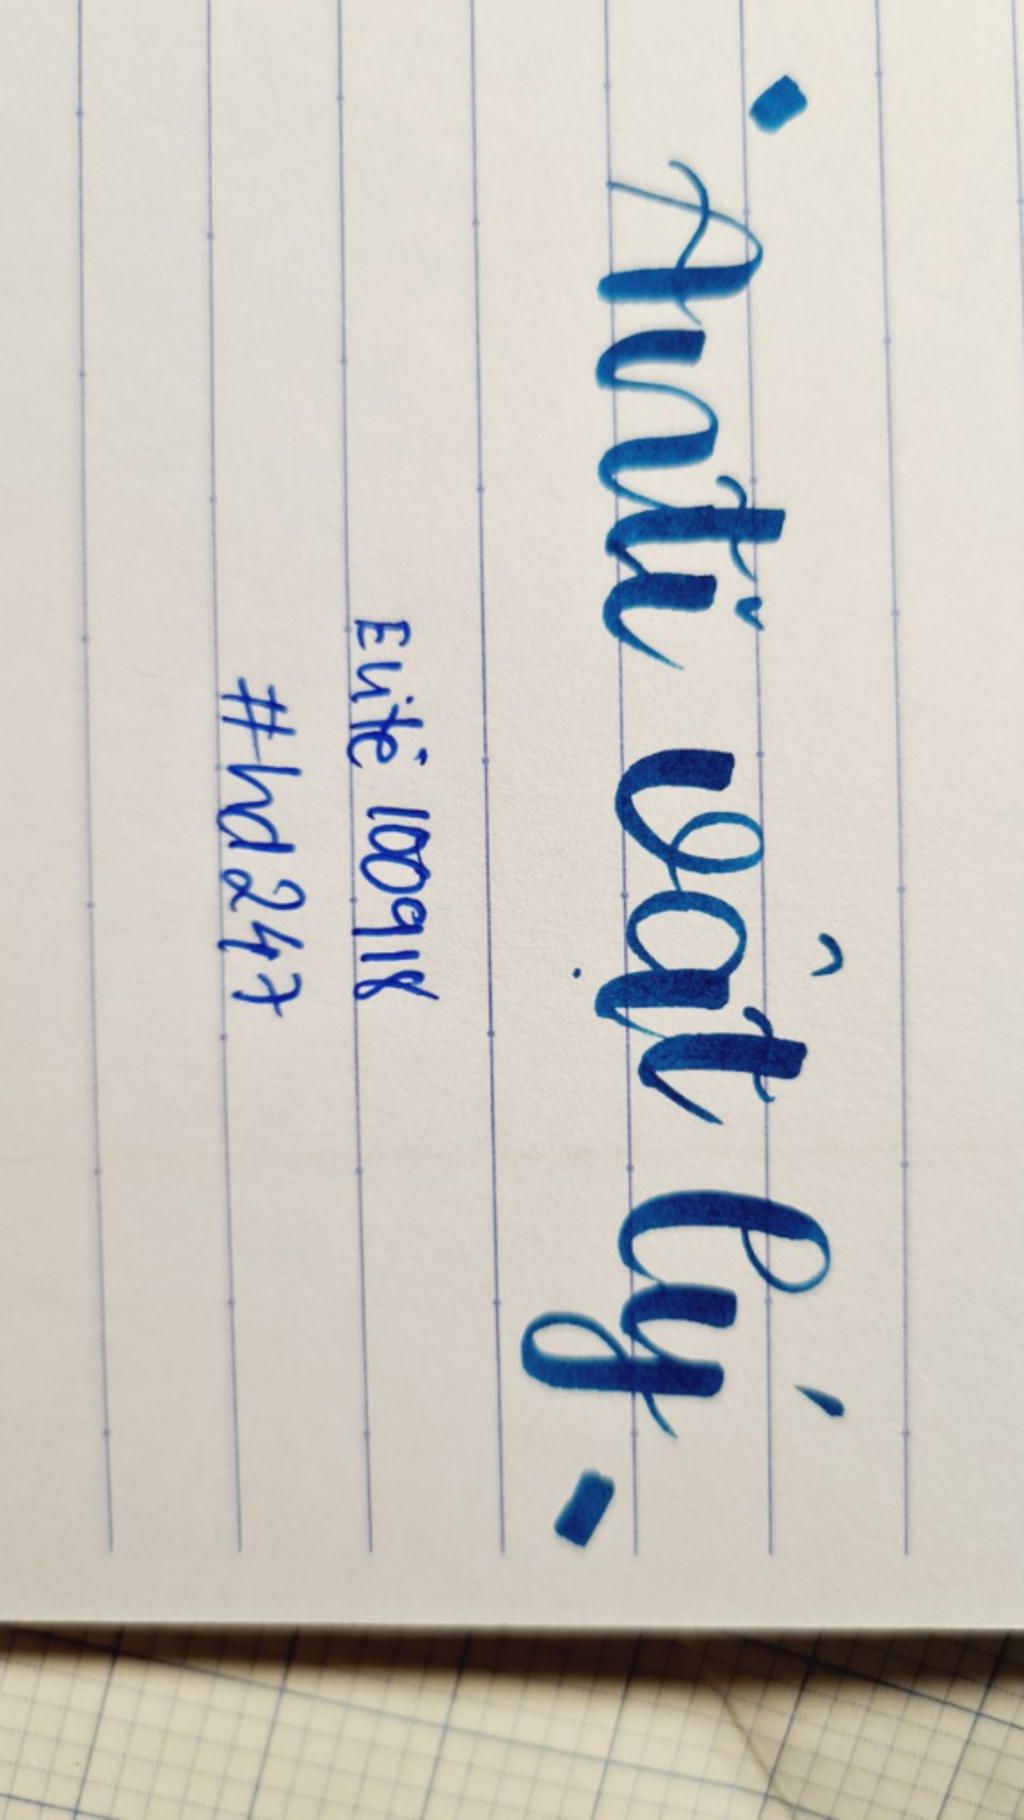 Anti vật lý
Elite 100918
#hd247